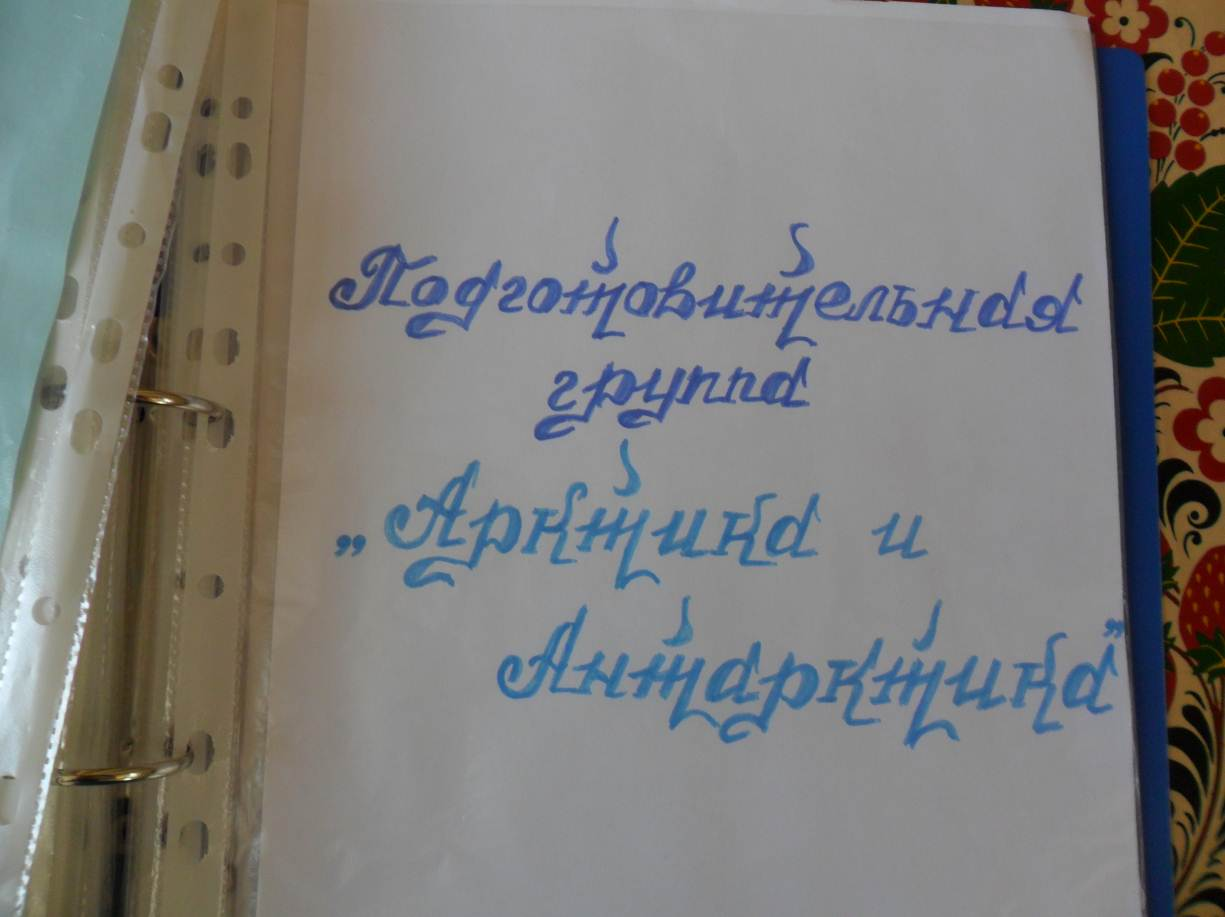 Подготовительная
группа
„Арктика и
Антарктика”